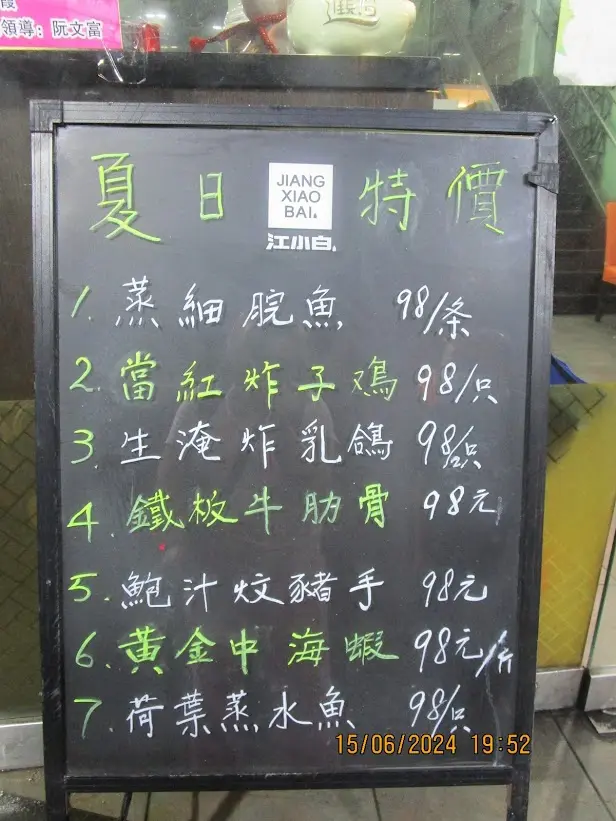 霞
領導: 阮文富
夏日 JIANG XIAO BAI. 江小白. 特價
1. 蒸細脘魚 98/条
2. 當紅炸子鳮 98/只
3. 生淹炸乳鴿 98/2只
4. 鐵板牛肋骨 98元
5. 鮑汁炆豬手 98元
6. 黃金中海蝦 98元/斤
7. 荷葉蒸水魚 98/只
15/06/2024 19:52